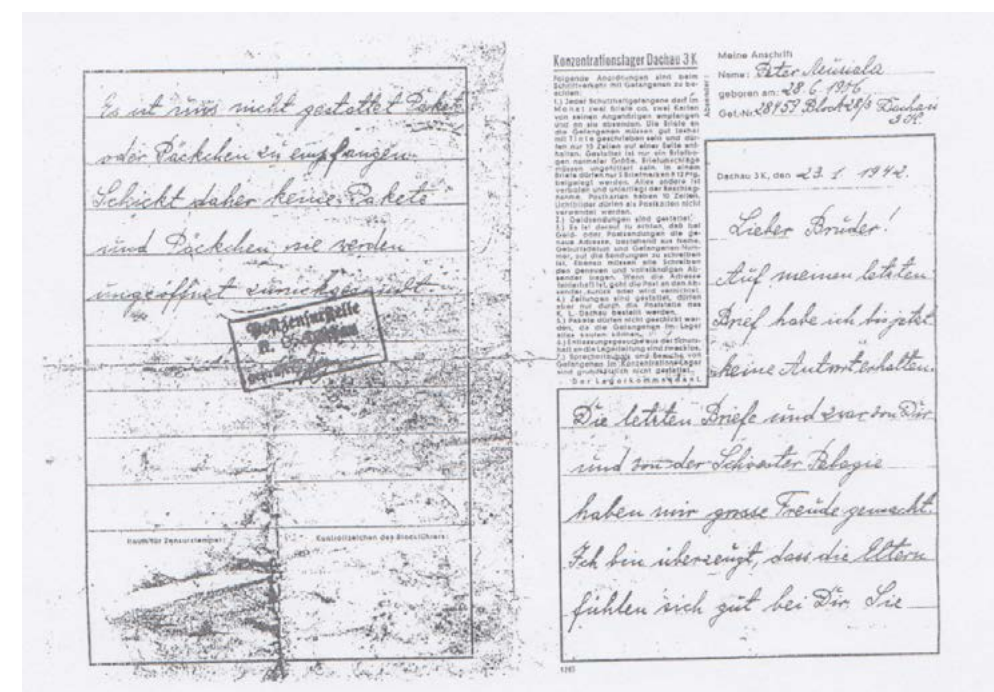 Es ist uns nicht gestattet Paket
oder Päckchen zu empfangen.
Schickt daher keine Pakete
und Päckchen, sie werden
ungeöffnet zurückgesandt.
Postzensurstelle
K.
Raum für Zensurstempel:
Kontrollzeichen des Blockführers:
Konzentrationslager Dachau 3 K
Folgende Anordnungen sind beim
Schriftverkehr mit Gefangenen zu be-
achten:
1.) Jeder Schutzhaftgefangene darf im
Monat zwei Briefe od. zwei Karten
von seinen Angehörigen empfangen
und an sie absenden. Die Briefe an
die Gefangenen müssen gut lesbar
mit Tinte geschrieben sein und dür-
fen nur 15 Zeilen auf einer Seite ent-
halten. Gestattet ist nur ein Briefbo-
gen normaler Größe. Briefumschläge
müssen ungefüttert sein. In einem
Briefe dürfen nur 5 Briefmarken à 12 Pfg.
beigelegt werden. Alles andere ist
verboten und unterliegt der Beschlag-
nahme. Postkarten haben 10 Zeilen.
Lichtbilder dürfen als Postkarten nicht
verwendet werden.
2.) Geldsendungen sind gestattet.
3.) Es ist darauf zu achten, daß bei
Geld- oder Postsendungen die ge-
naue Adresse, bestehend aus Name,
Geburtsdatum und Gefangenen-Num-
mer, auf die Sendungen zu schreiben
ist. Ebenso müssen alle Schreiben
den genauen und vollständigen Ab-
sender tragen. Wenn die Adresse
fehlerhaft ist, geht die Post an den Ab-
sender zurück oder wird vernichtet.
4.) Zeitungen sind gestattet, dürfen
aber nur durch die Poststelle des
K. L. Dachau bestellt werden.
5.) Pakete dürfen nicht geschickt wer-
den, da die Gefangenen im Lager
alles kaufen können.
6.) Entlassungsgesuche aus der Schutz-
haft an die Lagerleitung sind zwecklos.
7.) Sprecherlaubnis und Besuche von
Gefangenen im Konzentrations-Lager
sind grundsätzlich nicht gestattet.
Der Lagerkommandant.
Absender:
Meine Anschrift
Name: Peter
geboren am: 28. 6. 1916
Gef.-Nr. 28459 Block 28/3 Dachau
3 K.
Dachau 3 K, den 23. 1. 1942.
Lieber Bruder!
Auf meinen letzten
Brief habe ich bis jetzt
keine Antwort erhalten.
Die letzten Briefe und zwar von Dir
und von der Schwester Pelagie
haben mir grosse Freude gemacht.
Ich bin überzeugt, dass die Eltern
fühlen sich gut bei Dir. Sie